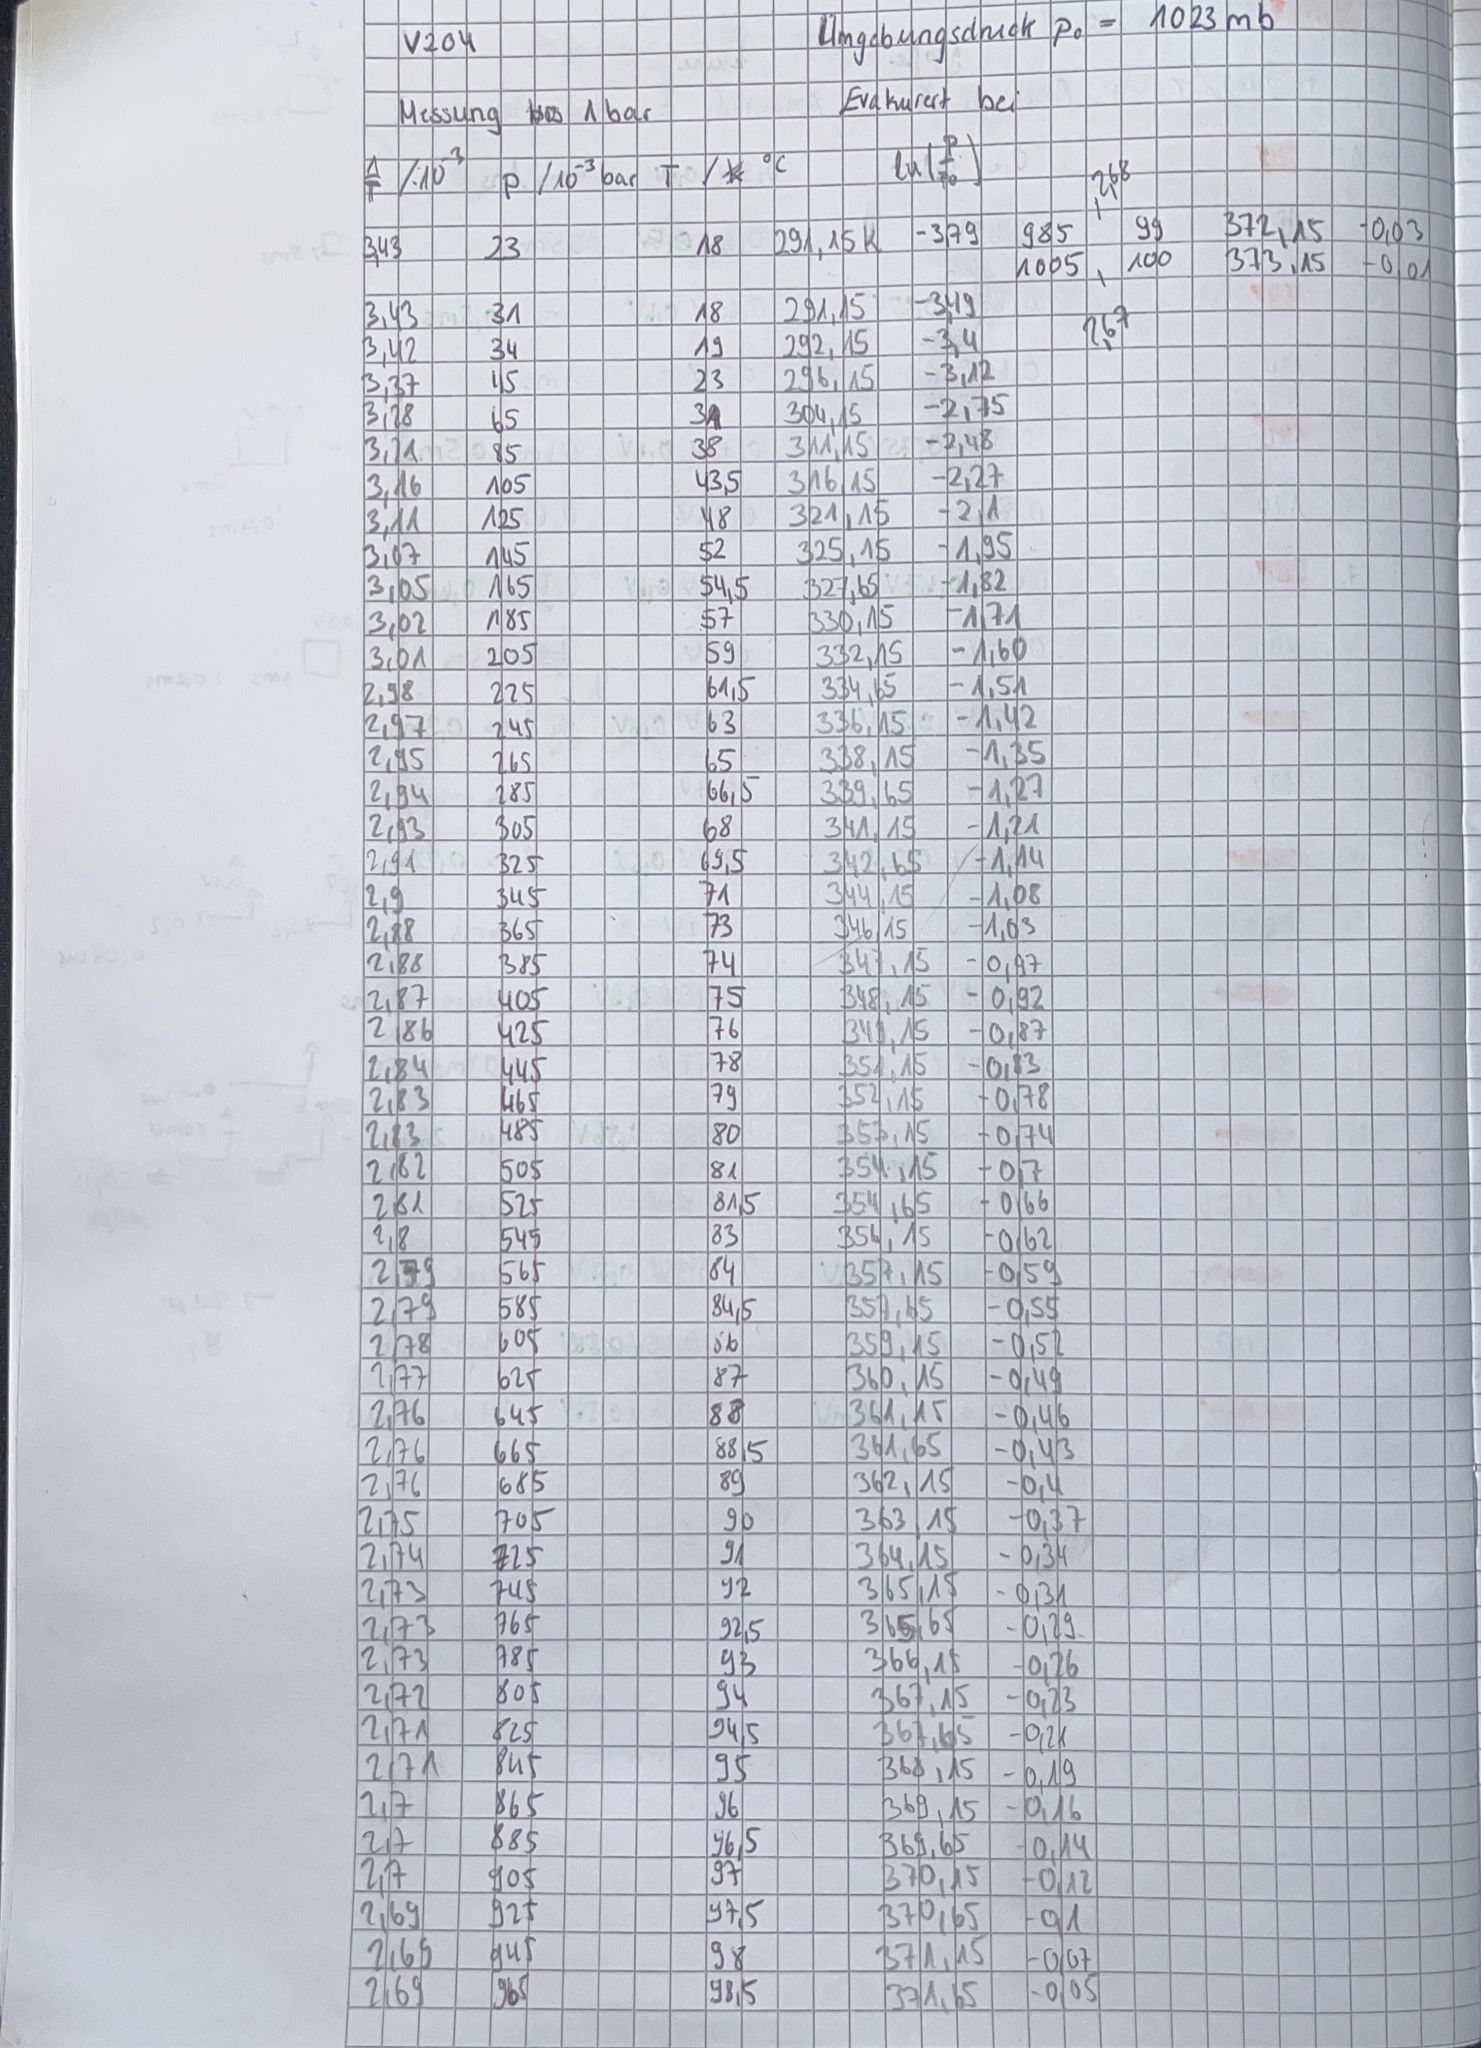 V204 Umgebungsdruck p₀ = 1023 mb
Messung 1 bar Evakuiert bei
1/T /·10⁻³ p /10⁻³ bar T / °C ln(p/p₀)
2,68
3,43 23 18 291,15 K -3,79 985 99 372,15 -0,03
1005 100 373,15 -0,01
3,43 31 18 291,15 -3,49
2,67
3,42 34 19 292,15 -3,4
3,37 45 23 296,15 -3,12
3,28 65 31 304,15 -2,75
3,21 85 38 311,15 -2,48
3,16 105 43,5 316,15 -2,27
3,11 125 48 321,15 -2,1
3,07 145 52 325,15 -1,95
3,05 165 54,5 327,65 -1,82
3,02 185 57 330,15 -1,71
3,01 205 59 332,15 -1,60
2,98 225 61,5 334,65 -1,51
2,97 245 63 336,15 -1,42
2,95 265 65 338,15 -1,35
2,94 285 66,5 339,65 -1,27
2,93 305 68 341,15 -1,21
2,91 325 69,5 342,65 -1,14
2,9 345 71 344,15 -1,08
2,88 365 73 346,15 -1,03
2,88 385 74 347,15 -0,97
2,87 405 75 348,15 -0,92
2,86 425 76 349,15 -0,87
2,84 445 78 351,15 -0,83
2,83 465 79 352,15 -0,78
2,83 485 80 353,15 -0,74
2,82 505 81 354,15 -0,7
2,81 525 81,5 354,65 -0,66
2,8 545 83 356,15 -0,62
2,79 565 84 357,15 -0,59
2,79 585 84,5 357,65 -0,55
2,78 605 86 359,15 -0,52
2,77 625 87 360,15 -0,49
2,76 645 88 361,15 -0,46
2,76 665 88,5 361,65 -0,43
2,76 685 89 362,15 -0,4
2,75 705 90 363,15 -0,37
2,74 725 91 364,15 -0,34
2,73 745 92 365,15 -0,31
2,73 765 92,5 365,65 -0,29
2,73 785 93 366,15 -0,26
2,72 805 94 367,15 -0,23
2,71 825 94,5 367,65 -0,21
2,71 845 95 368,15 -0,19
2,7 865 96 369,15 -0,16
2,7 885 96,5 369,65 -0,14
2,7 905 97 370,15 -0,12
2,69 925 97,5 370,65 -0,1
2,69 945 98 371,15 -0,07
2,69 965 98,5 371,65 -0,05